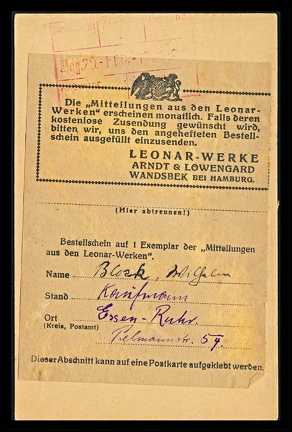 Eing. 29. FEB.
Die „Mitteilungen aus den Leonar-
Werken" erscheinen monatlich. Falls deren
kostenlose Zusendung gewünscht wird,
bitten wir, uns den angehefteten Bestell-
schein ausgefüllt einzusenden.
LEONAR-WERKE
ARNDT & LÖWENGARD
WANDSBEK BEI HAMBURG.
(Hier abtrennen!)
Bestellschein auf 1 Exemplar der „Mitteilungen
aus den Leonar-Werken".
Name Block, Wilhelm
Stand Kaufmann
Ort Essen-Ruhr.
(Kreis, Postamt) Pelmannstr. 59.
Dieser Abschnitt kann auf eine Postkarte aufgeklebt werden.